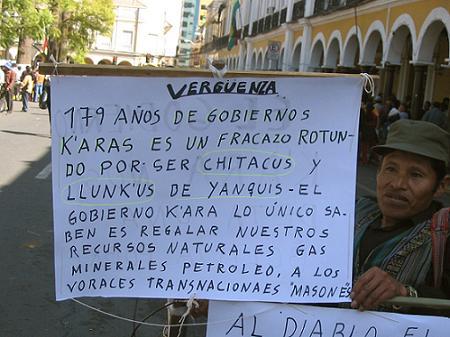 VERGÜENZA
179 AÑOS DE GOBIERNOS
K'ARAS ES UN FRACAZO ROTUN-
DO POR SER CHITACUS Y
LLUNK'US DE YANQUIS-EL
GOBIERNO K'ARA LO ÚNICO SA-
BEN ES REGALAR NUESTROS
RECURSOS NATURALES GAS
MINERALES PETROLEO, A LOS
VORACES TRANSNACIONAES "MASONES"
AL DIABLO EL